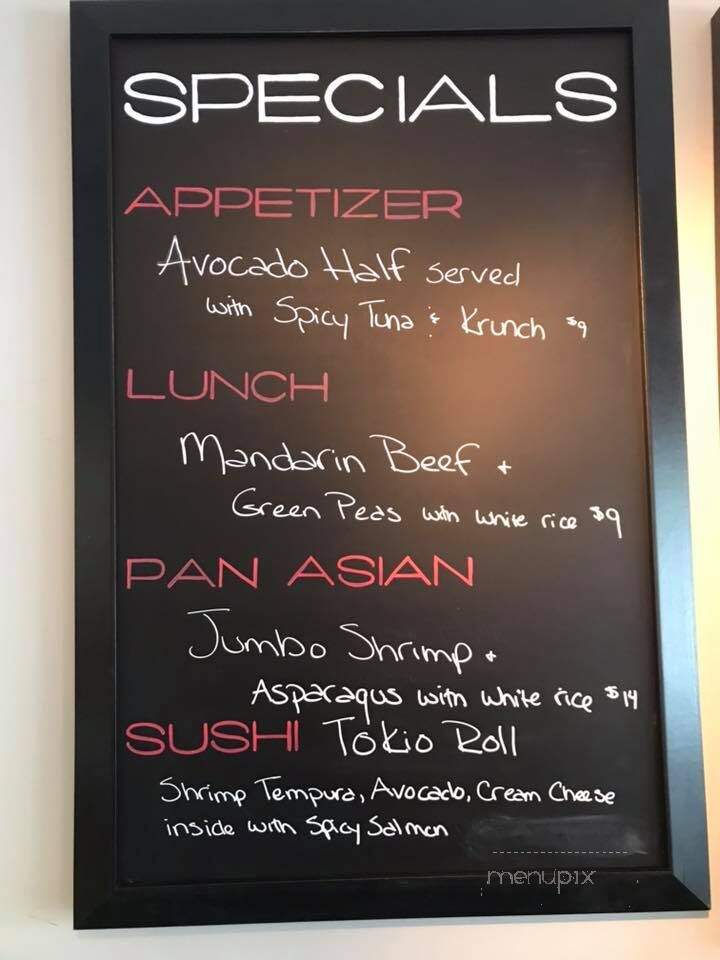 SPECIALS
APPETIZER
Avocado Half served
with Spicy Tuna & Krunch $9
LUNCH
Mandarin Beef +
Green Peas with white rice $9
PAN ASIAN
Jumbo Shrimp +
Asparagus with white rice $14
SUSHI Tokio Roll
Shrimp Tempura, Avocado, Cream Cheese
inside with Spicy Salmon
menupix